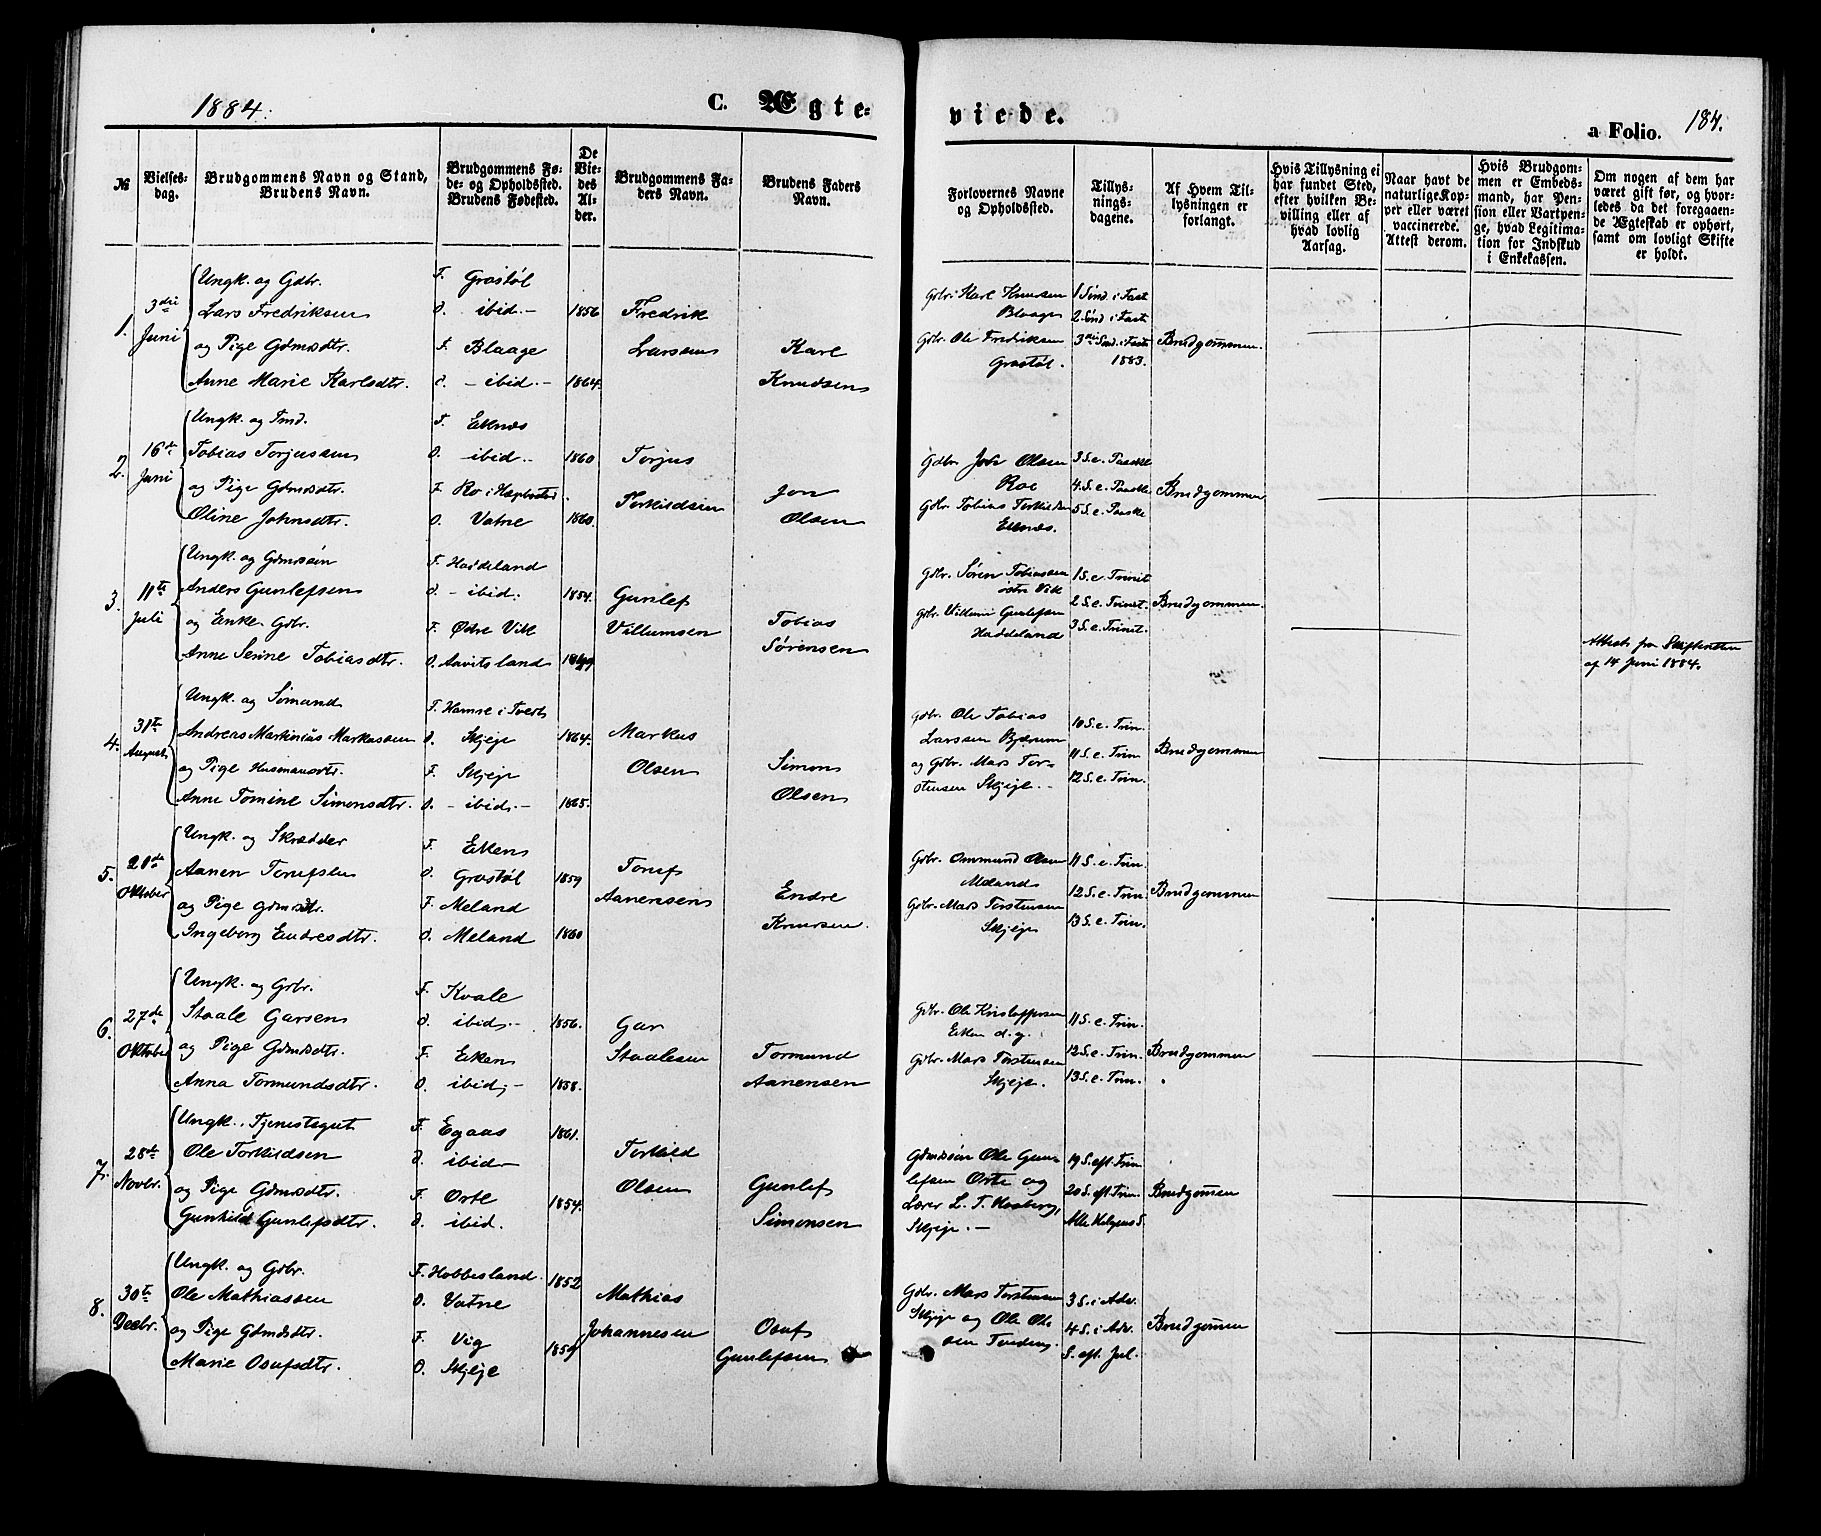 1884.
C. Ægte-
viede.
a Folio. 184.
№
Vielses-
dag.
Brudgommens Navn og Stand,
Brudens Navn.
Brudgommens Fø-
de- og Opholdssted.
Brudens Fødested.
De
Vie-
des
Al-
der.
Brudgommens Fa-
ders Navn.
Brudens Faders
Navn.
Forlovernes Navne
og Opholdssted.
Tillys-
nings-
dagene.
Af Hvem Til-
lysningen er
forlangt.
Hvis Tillysning ei
har fundet Sted,
efter hvilken Be-
villing eller af
hvad lovlig
Aarsag.
Naar havt de
naturlige Kop-
per eller været
vaccinerede.
Attest derom.
Hvis Brudgom-
men er Embeds-
mand, har Pen-
sion eller Vartpen-
ge, hvad Legitima-
tion for Indskud
i Enkekassen.
Om nogen af dem har
været gift før, og hvor-
ledes da det foregaaen-
de Ægteskab er ophørt,
samt om lovligt Skifte
er holdt.
1. 3die Juni
Ungk. og Gdbr.
Lars Fredriksen
og Pige Gdmdsdtr.
Anne Marie Karlsdtr.
F. Grostøl
O. ibid.
F. Blaage
O. ibid.
1856
1864.
Fredrik
Larssen
Karl
Knudsen
Gdbr. Karl Knudsen
Blaage
Gdbr. Ole Fredriksen
Grostøl.
1 Sønd. i Fast
2. Sønd i Fast
3die Sønd. i Fast
1883.
Brudgommen.
2. 16de Juni
Ungk. og Tmd.
Tobias Torjussen
og Pige Gdmdsdtr.
Oline Johnsdtr.
F. Eknes
O. ibid.
F. Ro i Hægebostad
O. Vatne
1860
1860.
Torjus
Torkildsen
Jon
Olsen
Gdbr. John Olsen
Roe
Gdbr. Tobias Torkildsen
Eknes.
3 S. e. Paaske
4. S. e. Paaske
5 S. e. Paaske
Brudgommen
3. 11te Juli
Ungk. og Gdmdssøn
Anders Gunlefsen
og Enke Gdbr.
Anne Serine Tobiasdtr.
F. Haddeland
O. ibid.
F. Ødre Vik
O. Aavitsland
1854.
Gunlef
Villumsen
Tobias
Sørensen
Gdbr. Søren Tobiassen
østre Vik
Gdbr. Villum Gunlefsen
Haddeland
1 S. e. Trinit
2 S. e. Trinit.
3 S. e. Trinit.
Brudgommen.
Attest fra Skifteretten
af 14 Juni 1884.
4. 31te August
Ungk. og Sømand
Andreas Martinius Markussen
og Pige Husmandsdtr.
Anne Tomine Simonsdtr.
F. Hamre i Tveit
O. Skjeje
F. Skjeje
O. ibid.
1864.
1865.
Markus
Olsen
Simon
Olsen
Gdbr. Ole Tobias
Larssen Bjærum
og Gdbr. Mars Tor-
stensen Skjeje.
10 S. e. Trin.
11 S. e. Trin
12 S. e. Trin.
Brudgommen
5. 20de Oktober
Ungk. og Skrædder
Aanen Torufsen
og Pige Gdmdsdtr.
Ingeborg Endresdtr.
F. Eiken
O. Grostøl
F. Meland
O. Meland
1859
1860
Toruf
Aanensen
Endre
Knudsen.
Gdbr. Ommund Olsen
Meland
Gdbr. Mars Torstensen
Skjeje
11 S. e. Trin.
12 S. e. Trin.
13 S. e. Trin.
Brudgommen
6. 27de Oktober
Ungk. og Gdbr.
Staale Garsen
og Pige Gdmdsdtr.
Anna Tormundsdtr.
F. Kvale
O. ibid.
F. Eiken
O. ibid.
1856.
1858.
Gar
Staalesen
Tormund
Aanensen
Gdbr. Ole Kristoffersen
Eiken d. y.
Gdbr. Mars Torstensen
Skjeje.
11 S. e. Trin.
12 S. e. Trin.
13 S. e. Trin.
Brudgommen
7. 28de Novbr.
Ungk., Tjenestegut
Ole Torkildsen
og Pige Gdmdsdtr.
Gunhild Gunlefsdtr.
F. Egaas
O. ibid
F. Orte
O. ibid.
1861.
1854.
Torkild
Olsen
Gunlef
Simonsen
Gdmdssøn Ole Gun-
lefsen Orte og
Lærer L. T. Hauberg,
Skjeje.
19 S. eft. Trin
20 S. eft. Trin.
Alle Helgens S.
Brudgommen
8. 30te Decbr.
Ungk. og Gdbr.
Ole Mathiassen
og Pige Gdmdsdtr.
Marie Osufsdtr.
F. Hobbesland
O. Vatne
F. Vig
O. Skjeje
1852
1859
Mathias
Johannesen
Osuf
Gunlefsen
Gdbr. Mars Torstensen
Skjeje og Ole Ol-
sen
3 S. i Adv.
4 S. i Adv.
S. eft. Jul.
Brudgommen